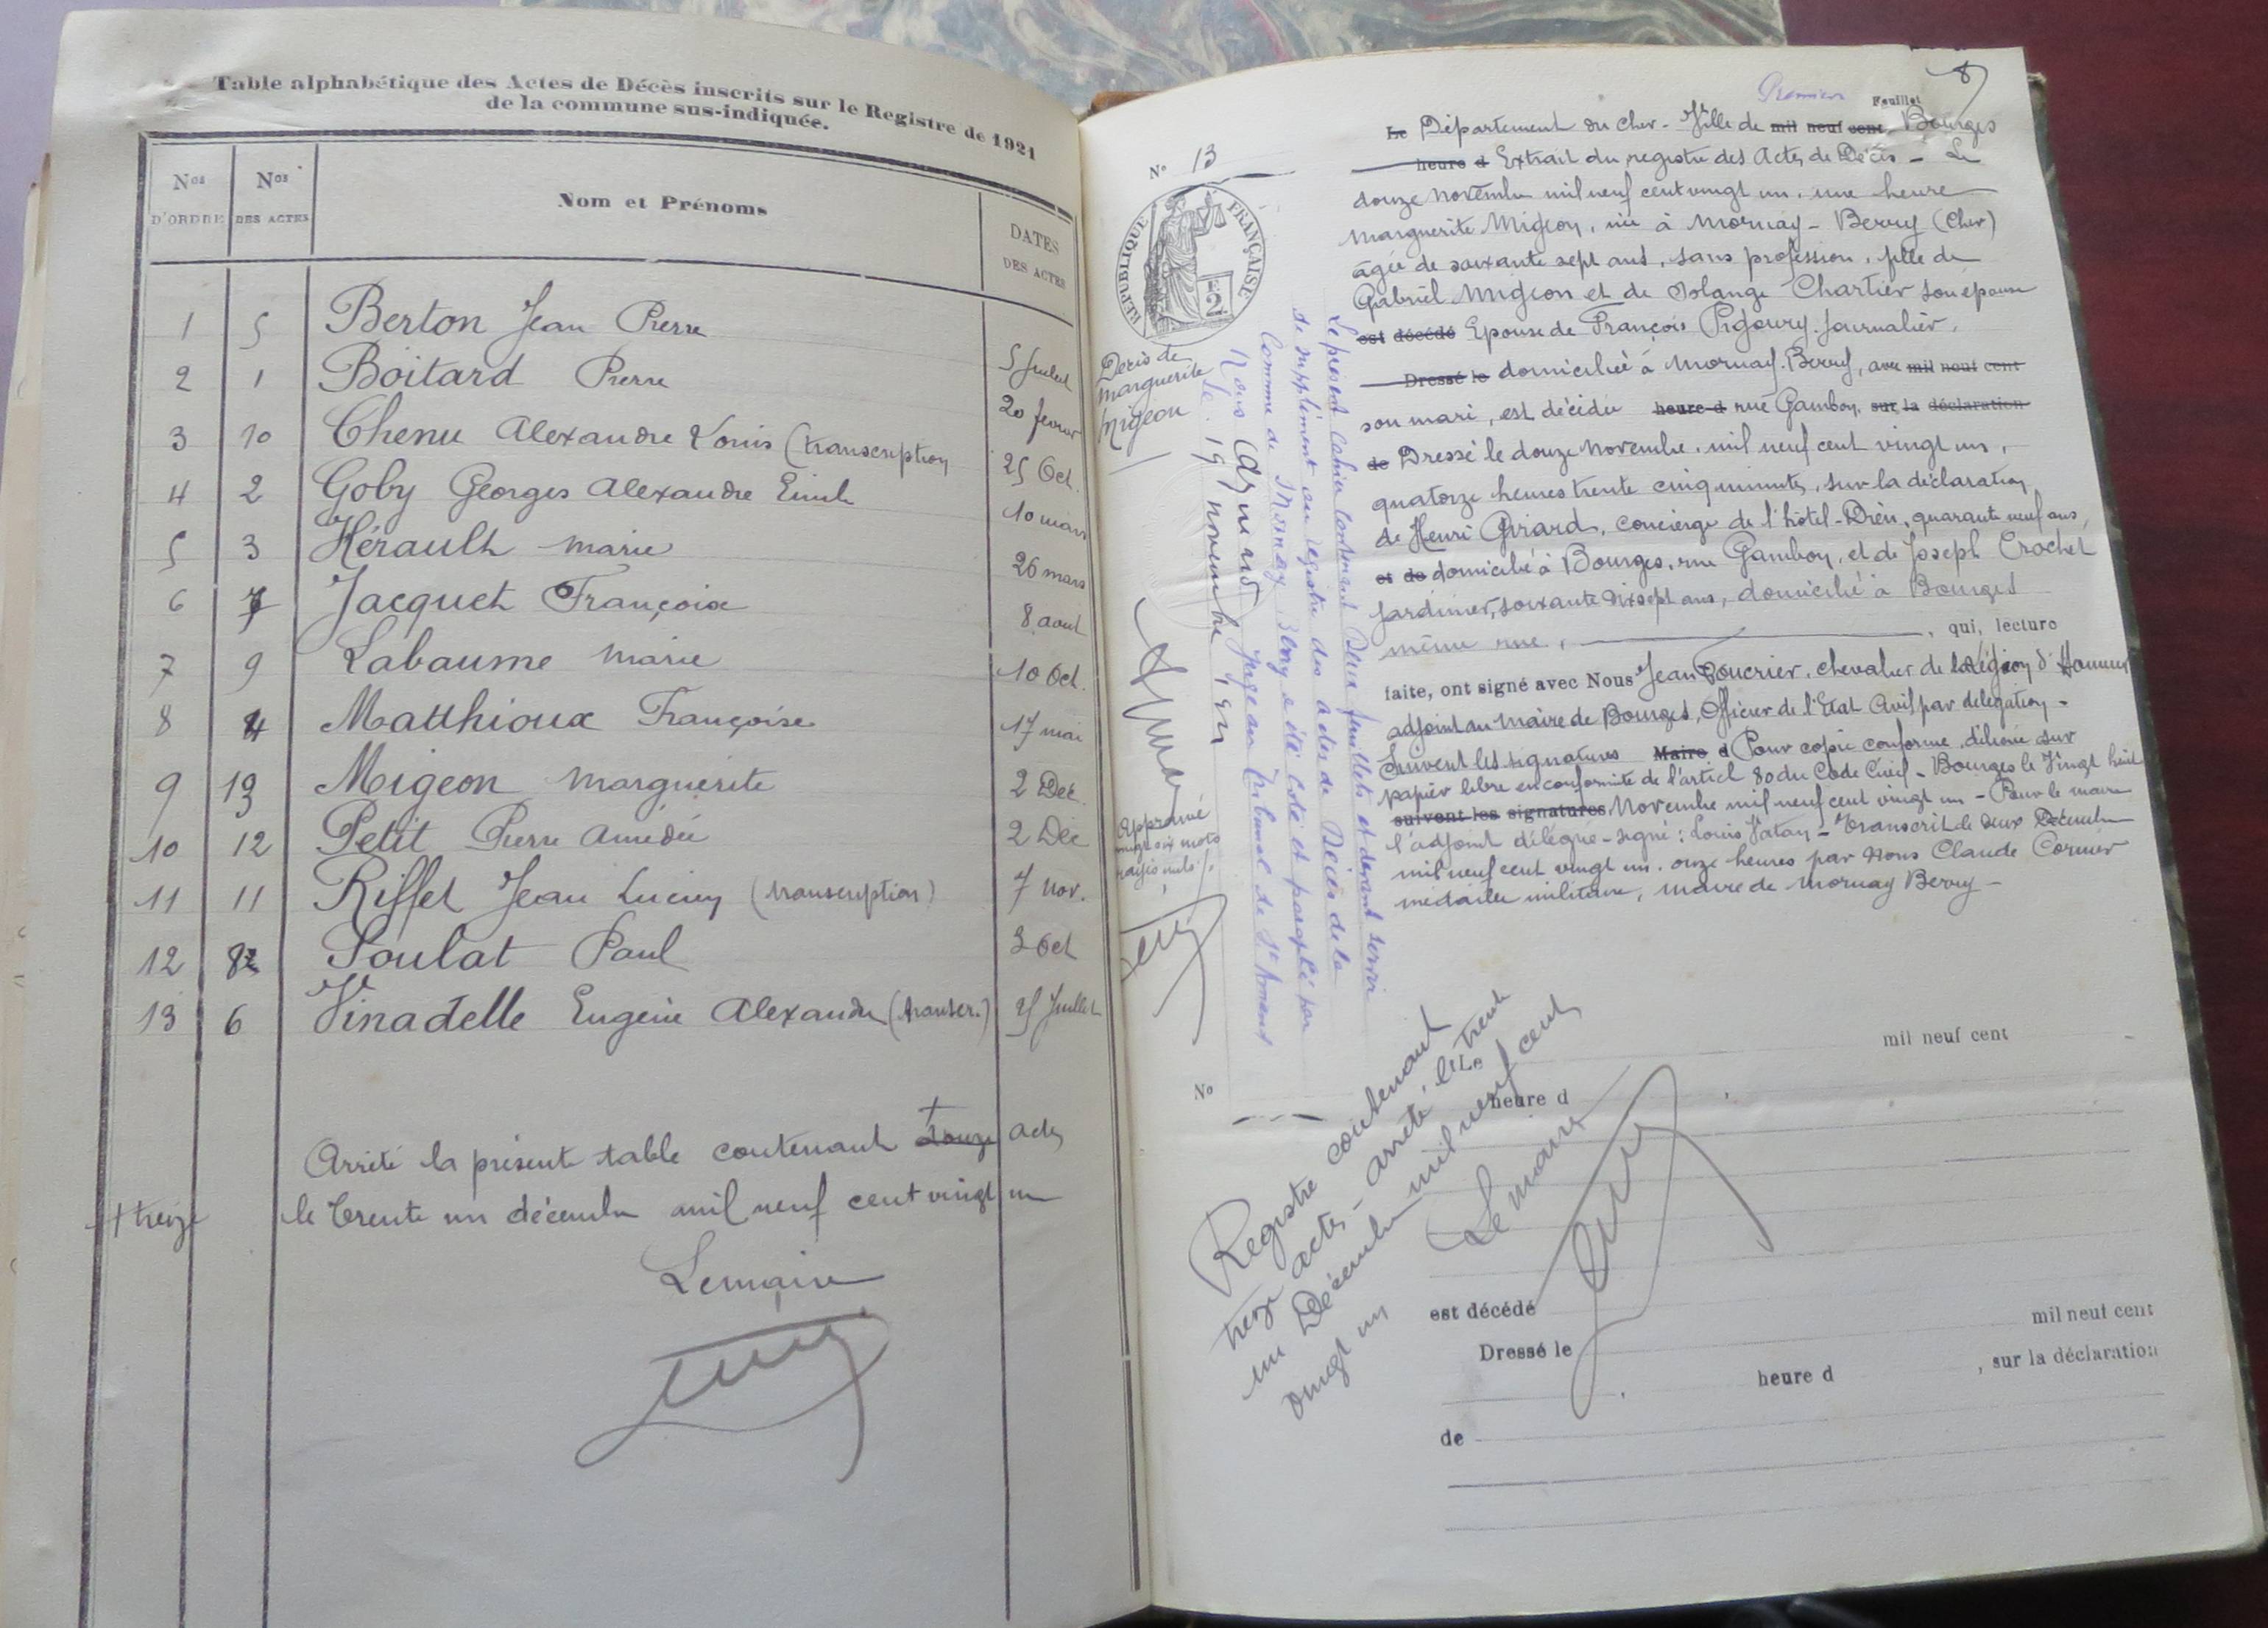 Table alphabétique des Actes de Décès inscrits sur le Registre de 1921
de la commune sus-indiquée.
Nos D'ORDRE
Nos DES ACTES
Nom et Prénoms
DATES DES ACTES
1 5 Berton Jean Pierre 5 Juillet
2 1 Boitard Pierre 20 fevrier
3 10 Chenu Alexandre Louis (transcription 25 Oct.
4 2 Goby Georges Alexandre Emile 10 mars
5 3 Hérault marie 26 mars
6 7 Jacquet Françoise 8 aout
7 9 Labaume Marie 10 Oct.
8 4 Matthioux Françoise 17 mai
9 13 Migeon Marguerite 2 Déc.
10 12 Petit Pierre Amédée 2 Déc
11 11 Riffet Jean Lucien (transcription) 7 nov.
12 8 Soulat Paul 3 Oct
13 6 Vinadelle Eugène Alexandre (transcr.) 25 Juillet
Arrêté la présente table contenant + douze actes
+ treize
le trente un décembre mil neuf cent vingt un
Le maire
Premier Feuillet
8
No 13
RÉPUBLIQUE FRANÇAISE
2
Décès de
Marguerite
Migeon
Le Département du Cher - Ville de mil neuf cent Bourges
heure d Extrait du registre des Actes de Décès - Le
douze novembre mil neuf cent vingt un, une heure
Marguerite Migeon, née à Mornay-Berry (Cher)
âgée de soixante sept ans, sans profession, fille de
Gabriel Migeon et de Solange Chartier son épouse
est décédé Epouse de François Pigoury, journalier,
Dressé le domiciliée à Mornay-Berry, avec mil neuf cent
son mari, est décédée heure d rue Gambon, sur la déclaration
de Dressé le douze Novembre mil neuf cent vingt un,
quatorze heures trente cinq minutes, sur la déclaration
de Henri Girard, concierge de l'hôtel-Dieu, quarante neuf ans,
et de domicilié à Bourges, rue Gambon, et de Joseph Crochet
jardinier, soixante dix sept ans, domicilié à Bourges
même rue, , qui, lecture
faite, ont signé avec Nous Jean Foucrier, chevalier de la Légion d'Honneur
adjoint au Maire de Bourges, Officier de l'Etat Civil par délégation -
Suivent les signatures Maire d Pour copie conforme délivrée sur
papier libre en conformité de l'article 80 du Code Civil - Bourges le Vingt huit
suivent les signatures. Novembre mil neuf cent vingt un - Pour le maire
l'adjoint délégué - signé : Louis Vatan - Transcrit le deux Décembre
mil neuf cent vingt un, onze heures par Nous Claude Cornier
médaille militaire, maire de Mornay Berry -
Approuvé
vingt six mots
rayés nuls
Le présent cahier contenant deux feuillets et devant servir
de supplément au registre des actes de Décès de la
Commune de Mornay Berry a été coté et paraphé par
Nous Juge au Tribunal de St Amand
Le 19 novembre 1921
No
Le mil neuf cent
heure d
Registre contenant
treize actes - arrêté le trente
un Décembre mil neuf cent
vingt un
Le maire
est décédé
Dressé le mil neuf cent
heure d , sur la déclaration
de